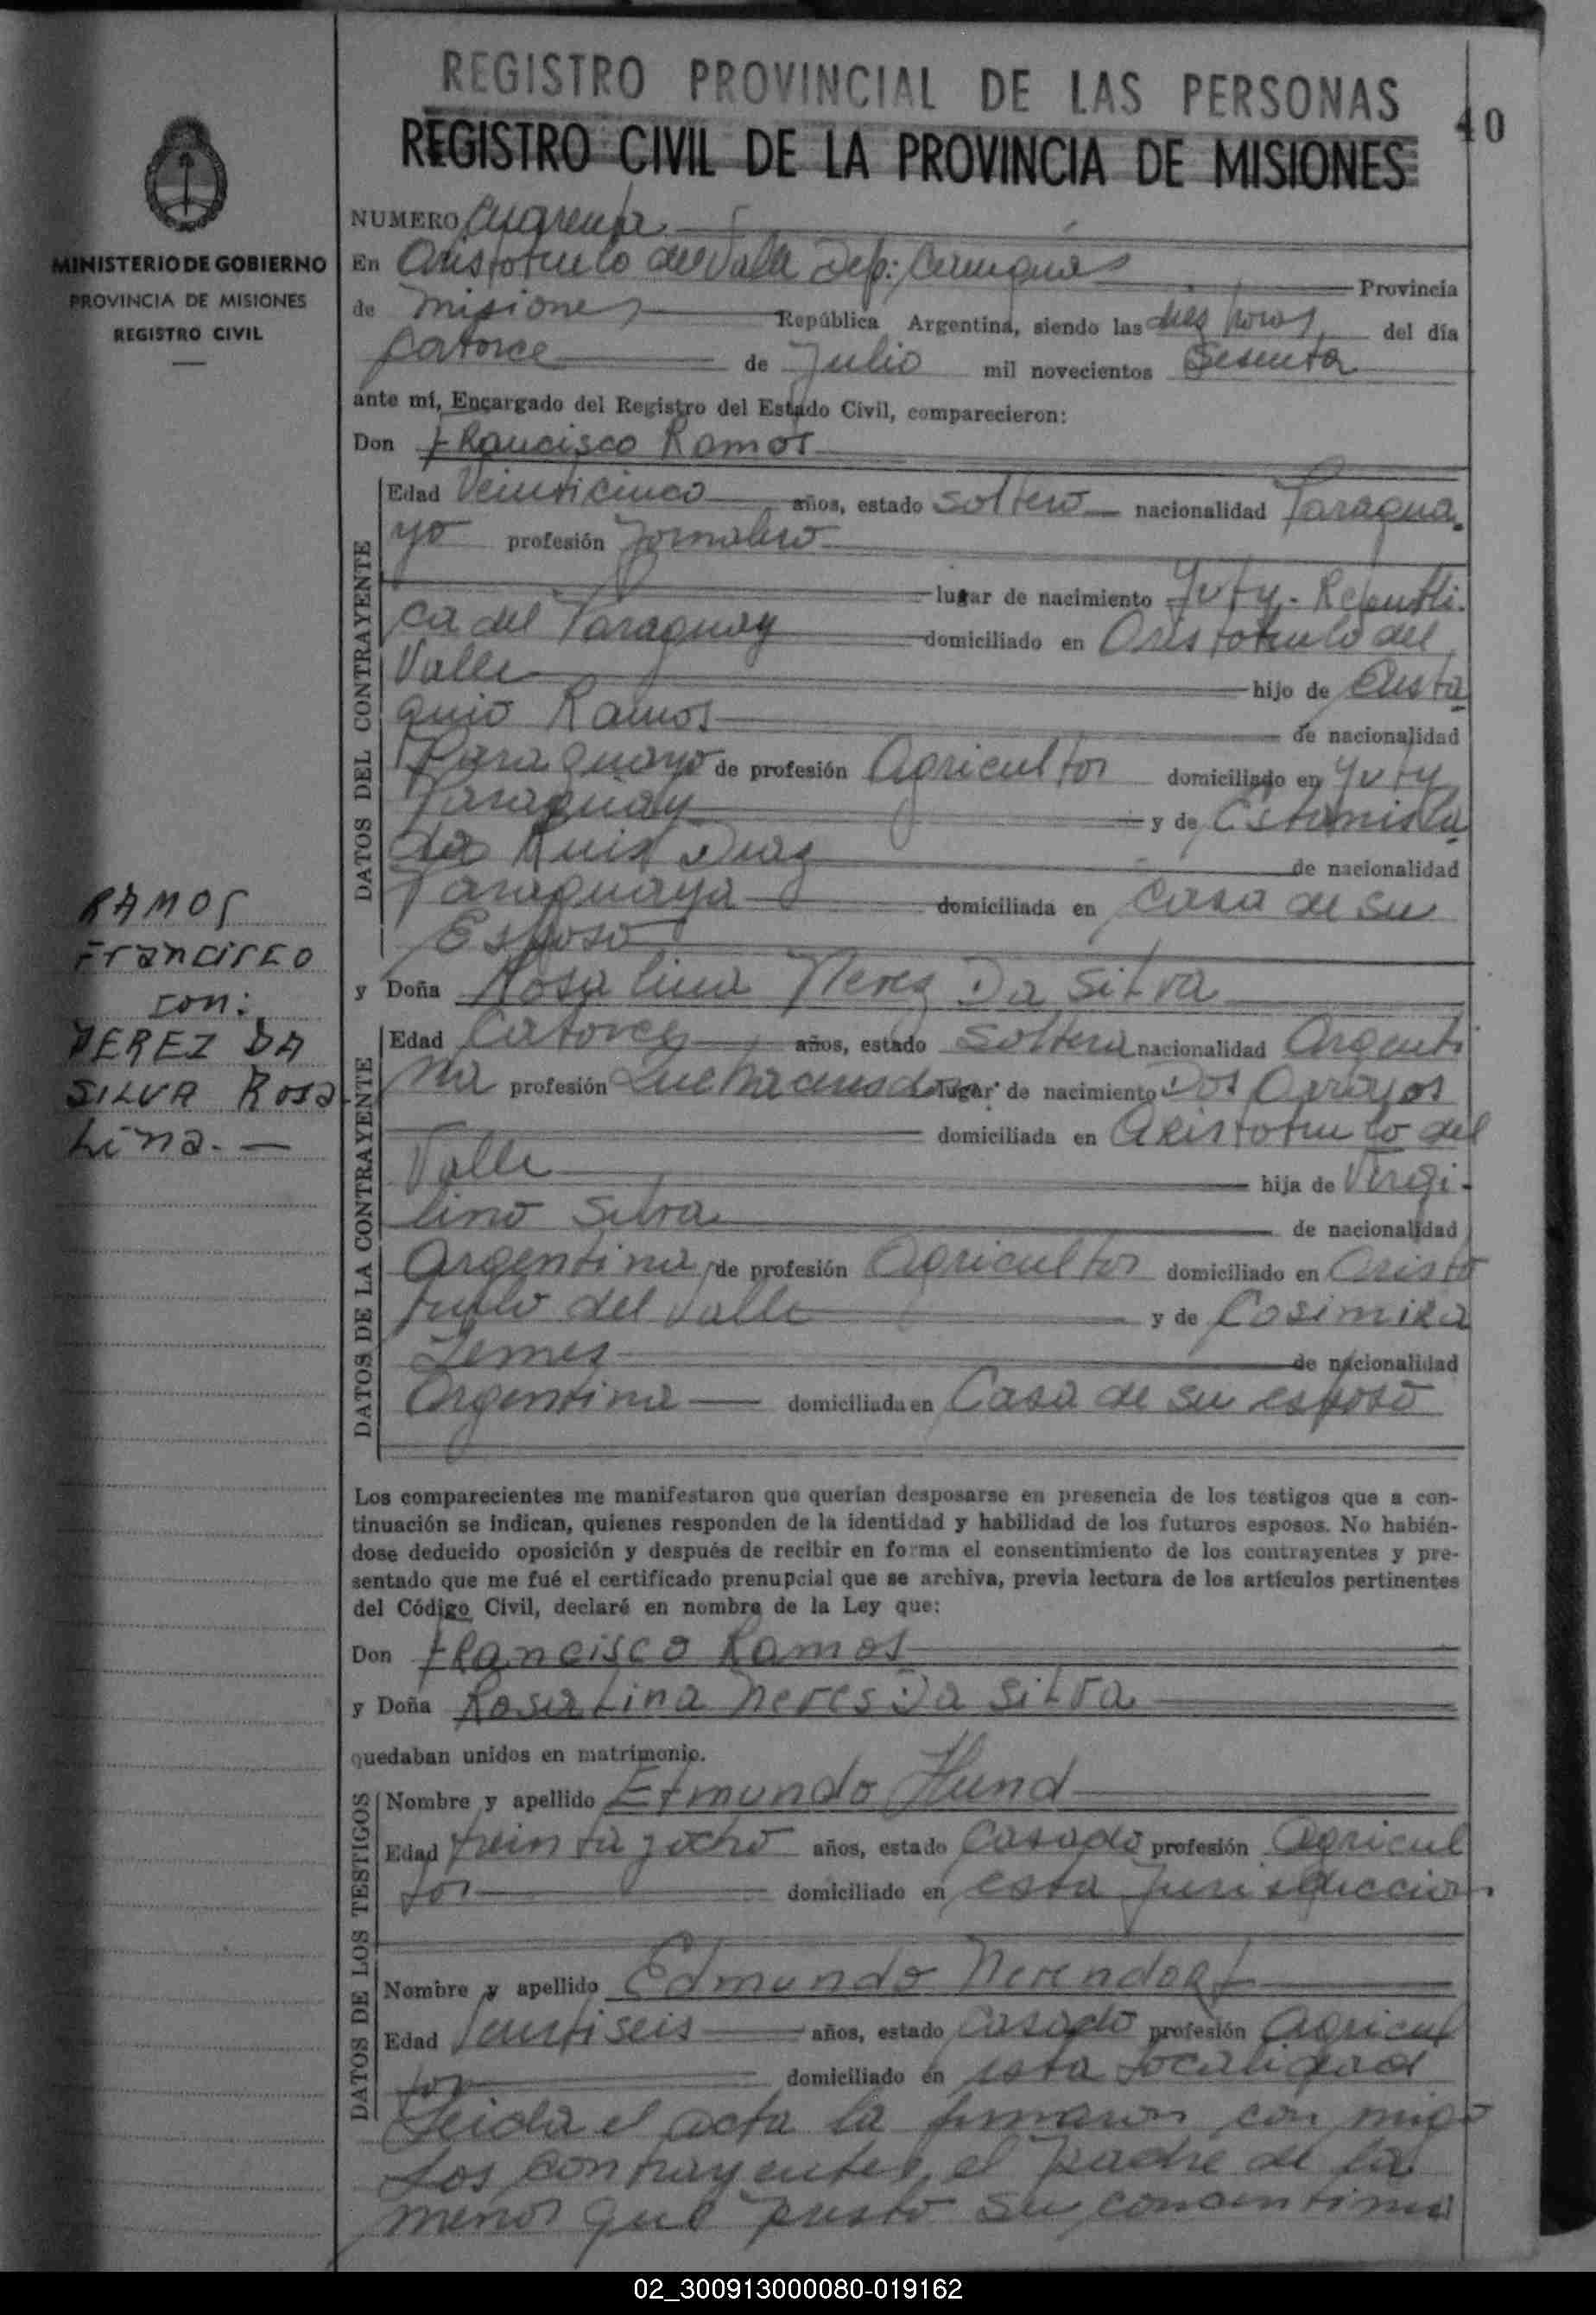 REGISTRO PROVINCIAL DE LAS PERSONAS
REGISTRO CIVIL DE LA PROVINCIA DE MISIONES
40
MINISTERIO DE GOBIERNO
PROVINCIA DE MISIONES
REGISTRO CIVIL
RAMOS
Francisco
con:
NEREZ DA
SILVA Rosa
Lina.—
NUMERO Cuarenta
En Aristobulo del Valle Dep: Cainguas Provincia
de Misiones República Argentina, siendo las diez horas del día
Catorce de Julio mil novecientos Sesenta
ante mí, Encargado del Registro del Estado Civil, comparecieron:
Don Francisco Ramos
DATOS DEL CONTRAYENTE
Edad Veinticinco años, estado Soltero nacionalidad Paragua-
yo profesión Jornalero
lugar de nacimiento Yuty - Republi-
ca del Paraguay domiciliado en Aristobulo del
Valle hijo de Eusta
quio Ramos de nacionalidad
Paraguayo de profesión Agricultor domiciliado en Yuty
Paraguay y de Estanisla
da Ruis Diaz de nacionalidad
Paraguaya domiciliada en Casa de su
Esposo
y Doña Rosa lina Nerez Da Silva
DATOS DE LA CONTRAYENTE
Edad Catorce años, estado Soltera nacionalidad Argenti
na profesión Quehaceres lugar de nacimiento Dos Arroyos
domiciliada en Aristobulo del
Valle hija de Virgi-
lino Silva de nacionalidad
Argentina de profesión Agricultor domiciliado en Aristo
bulo del Valle y de Casimira
Lemes de nacionalidad
Argentina domiciliada en Casa de su esposo
Los comparecientes me manifestaron que querían desposarse en presencia de los testigos que a con-
tinuación se indican, quienes responden de la identidad y habilidad de los futuros esposos. No habién-
dose deducido oposición y después de recibir en forma el consentimiento de los contrayentes y pre-
sentado que me fué el certificado prenupcial que se archiva, previa lectura de los artículos pertinentes
del Código Civil, declaré en nombre de la Ley que:
Don Francisco Ramos
y Doña Rosa Lina Neres Da Silva
quedaban unidos en matrimonio.
DATOS DE LOS TESTIGOS
Nombre y apellido Etmundo Hund
Edad treinta y ocho años, estado Casado profesión Agricul
tor domiciliado en esta Jurisdiccion
Nombre y apellido Edmundo Nerendorf
Edad años, estado Casado profesión Agricul
tor domiciliado en esta localidad
Leida el acta la firmaron con migo
Los contrayentes, el padre de la
menor que presto su
02_300913000080-019162